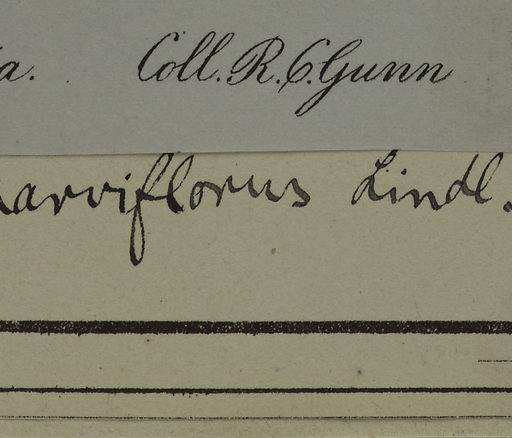 a. Coll. R. C. Gunn
parviflorus Lindl.